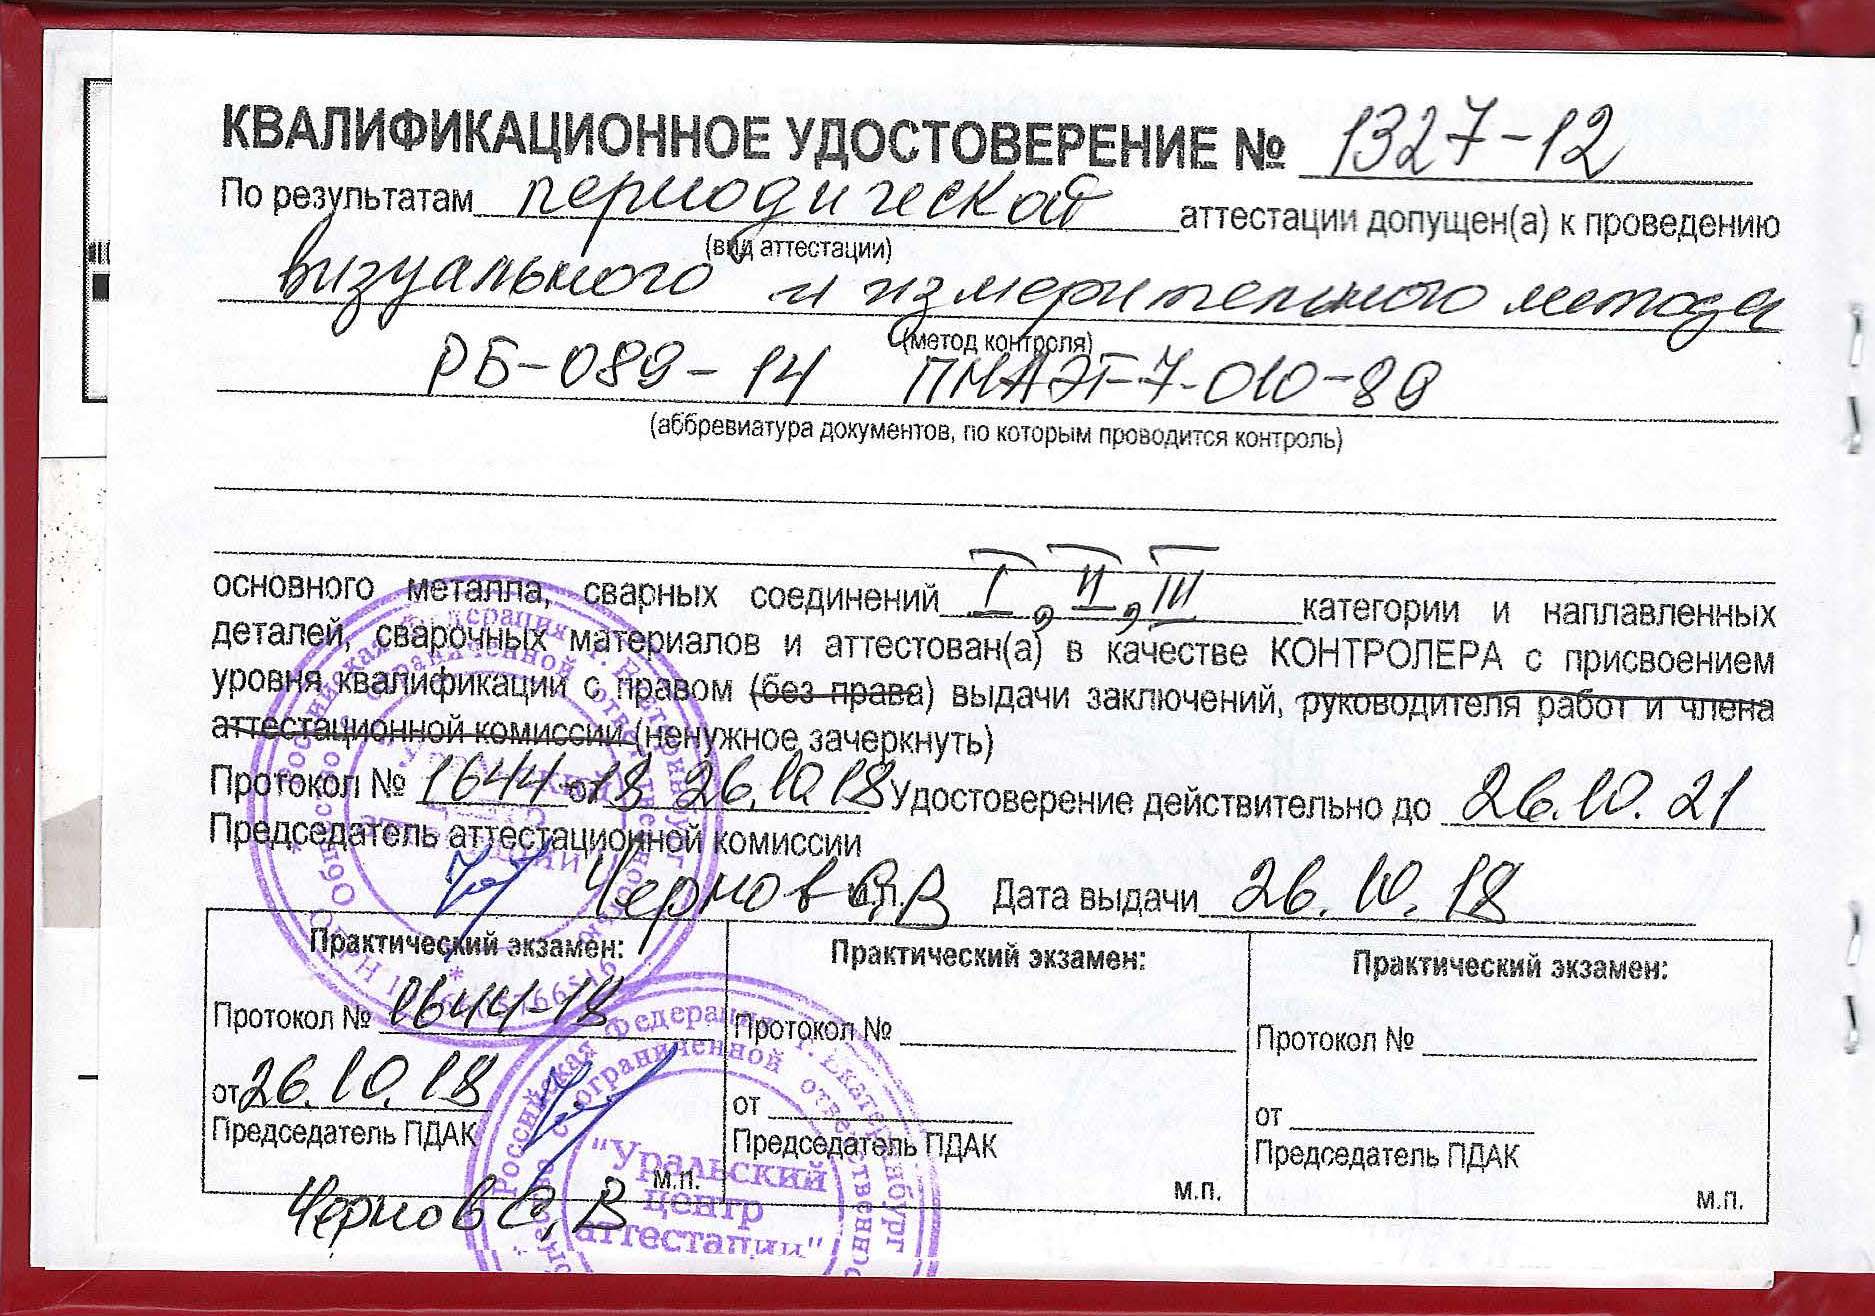 КВАЛИФИКАЦИОННОЕ УДОСТОВЕРЕНИЕ № 1327-12
По результатам периодической аттестации допущен(а) к проведению
(вид аттестации)
визуального и измерительного метода
(метод контроля)
РБ-089-14 ПНАЭГ-7-010-89
(аббревиатура документов, по которым проводится контроль)
основного металла, сварных соединений I, II, III категории и наплавленных
деталей, сварочных материалов и аттестован(а) в качестве КОНТРОЛЕРА с присвоением
уровня квалификации с правом (без права) выдачи заключений, руководителя работ и члена
аттестационной комиссии (ненужное зачеркнуть)
Протокол № 1644-18 от 26.10.18 Удостоверение действительно до 26.10.21
Председатель аттестационной комиссии
Чернов С.В Дата выдачи 26.10.18
Практический экзамен:
Протокол № 1644-18
от 26.10.18
Председатель ПДАК
м.п.
Чернов С.В
Практический экзамен:
Протокол №
от
Председатель ПДАК
м.п.
Практический экзамен:
Протокол №
от
Председатель ПДАК
м.п.
Российская Федерация г. Екатеринбург
с ограниченной ответственностью
"Уральский
центр
аттестации"